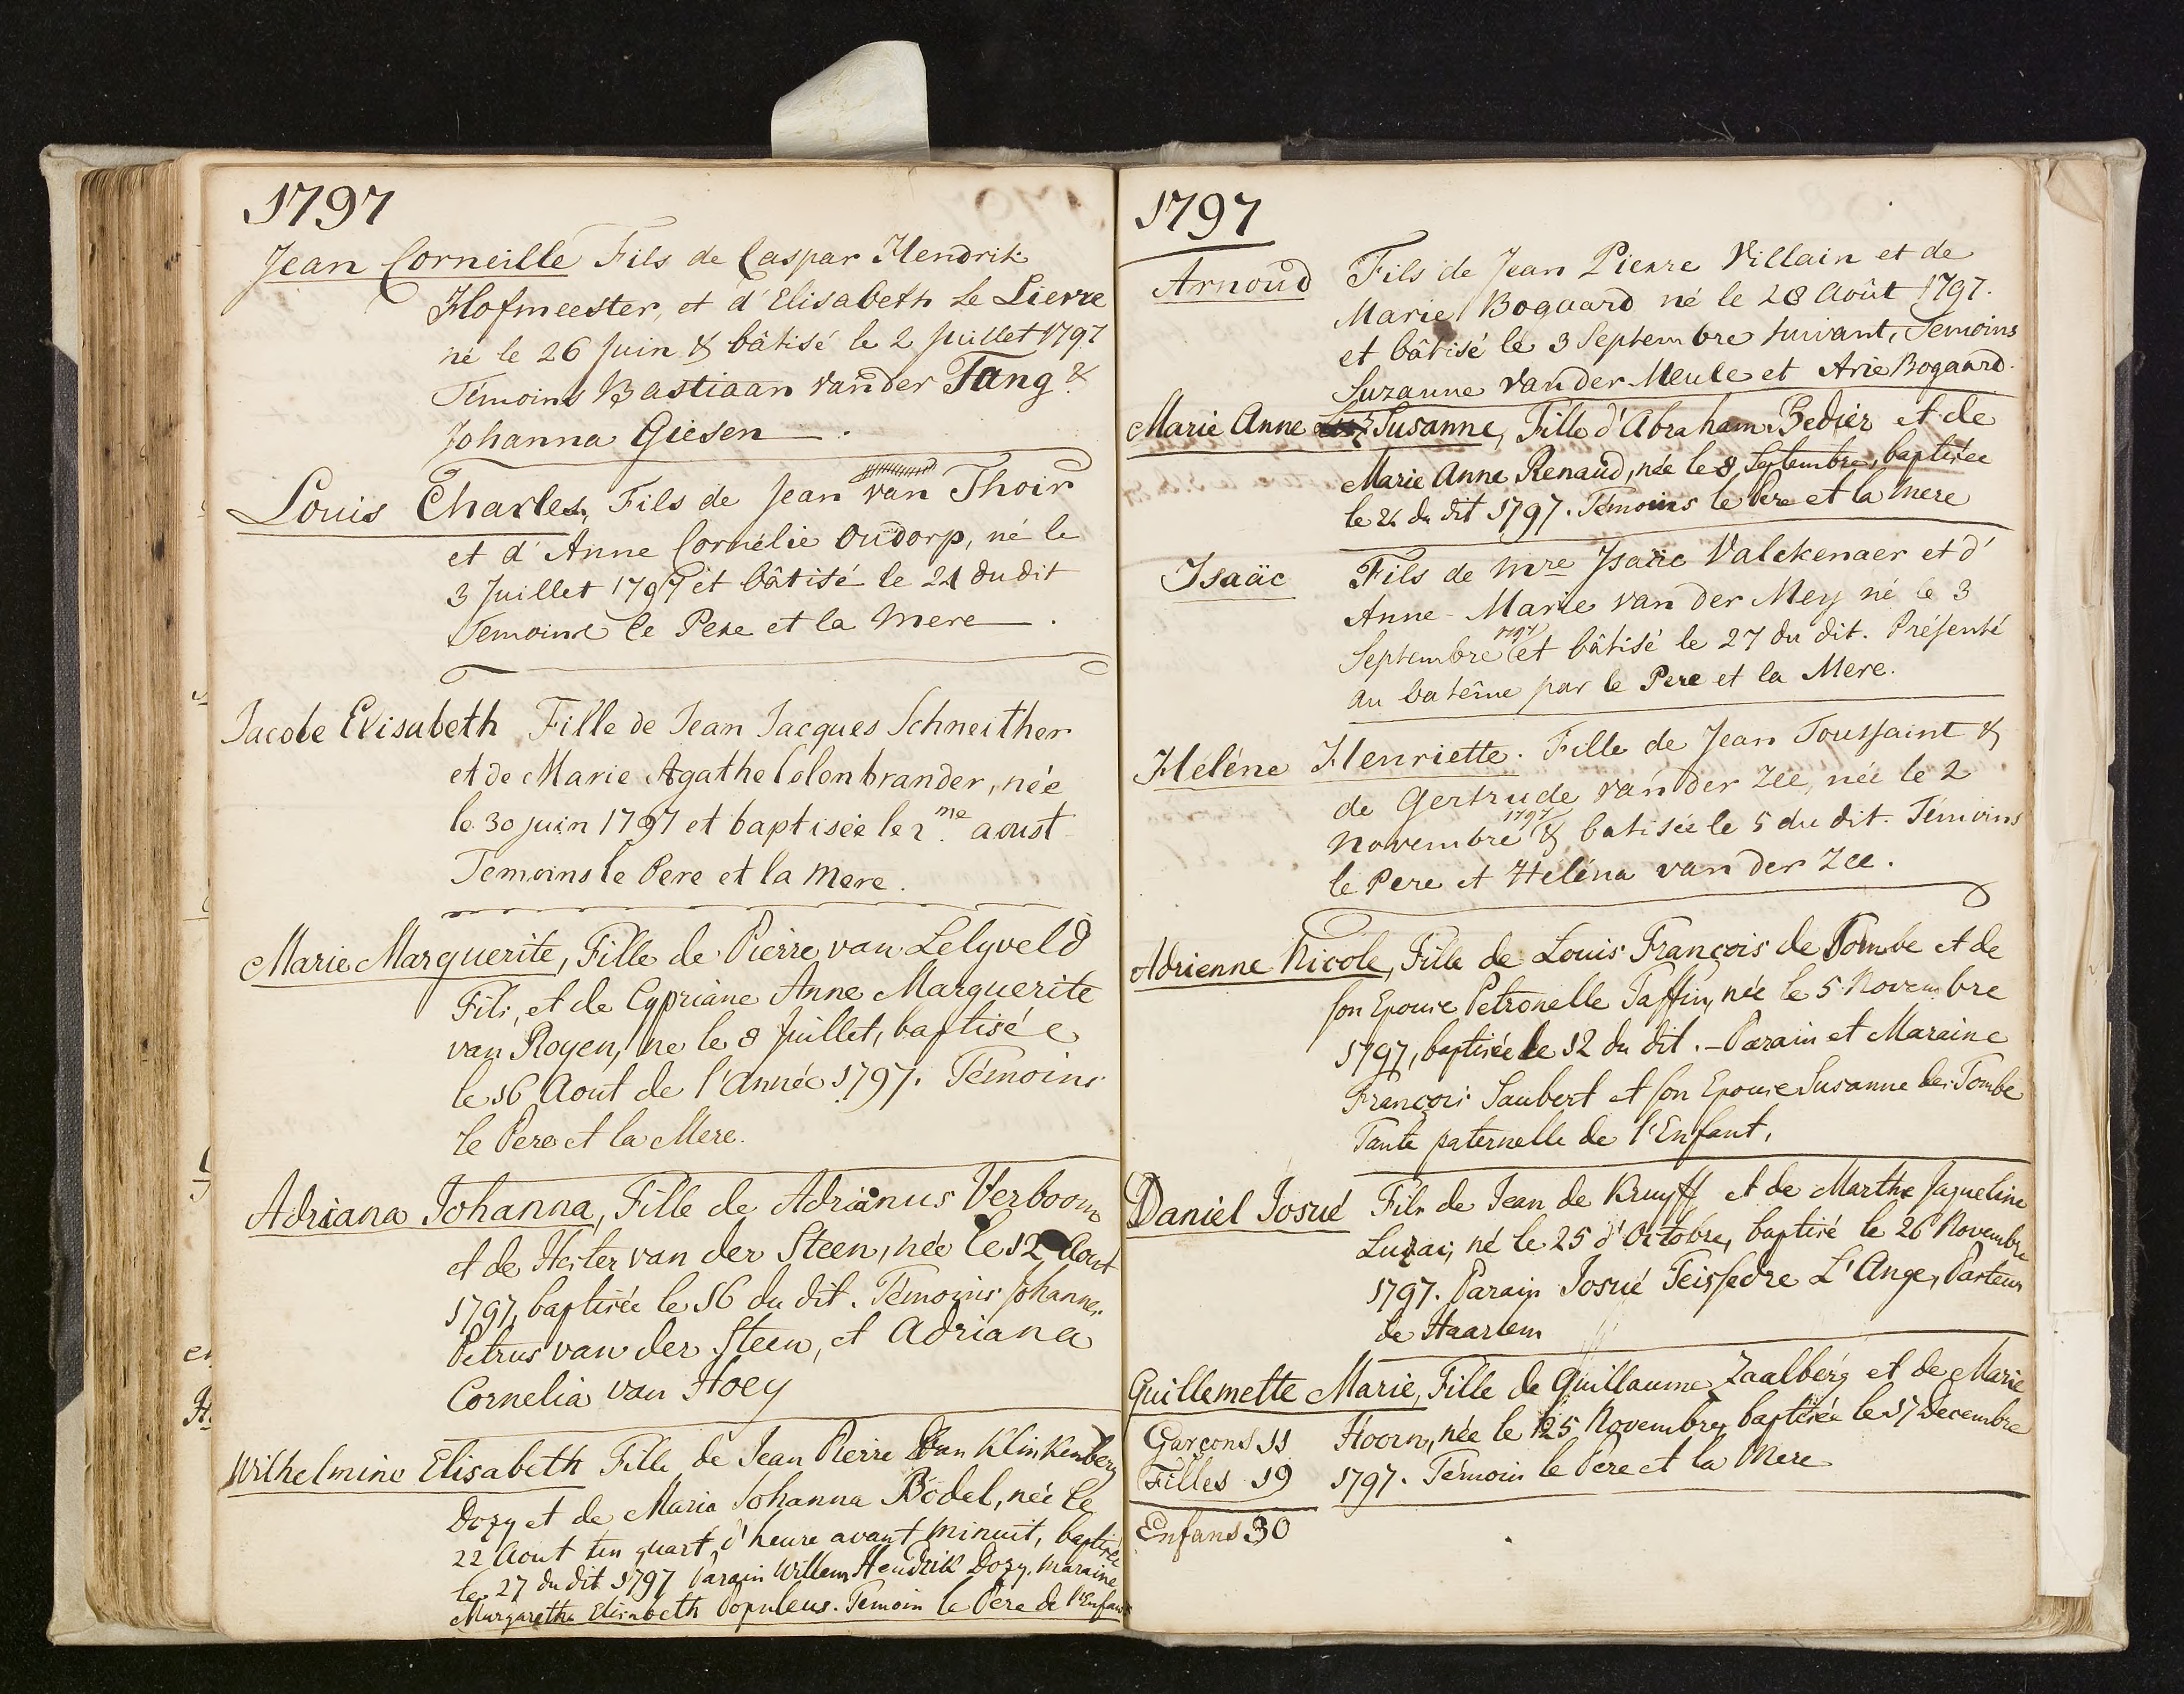 1797
Jean Corneille Fils de Caspar Hendrik
Hofmeester, et d'Elisabeth Le Lierre
né le 26 Juin & bâtisé le 2 Juillet 1797
Témoins Bastiaan vander Tang &
Johanna Giesen.
Louis Charles, Fils de Jean van Thoir
et d'Anne Cornélie Oudorp, né le
3 Juillet 1797 et bâtisé le 21 du dit
Temoins le Pere et la Mere.
Jacobe Elisabeth Fille de Jean Jacques Schneither
et de Marie Agathe Colonbrander, née
le 30 juin 1797 et baptisée le 2.me aoust
Temoins le Pere et la Mere.
Marie Marguerite, Fille de Pierre van Lelyveld
Fils, et de Cypriane Anne Marguerite
van Royen, ne le 8 Juillet, baptisée
le 16 Aout de l'Année 1797. Témoins
le Pere et la Mere.
Adriana Johanna, Fille de Adrianus Verboom
et de Hester van der Steen, née le 12 Aout
1797, baptisée le 16 du dit. Témoins Johannes
Petrus van der Steen, et Adriana
Cornelia van Hoey
Wilhelmine Elisabeth Fille de Jean Pierre van Klinkenberg
Dozy et de Maria Johanna Bodel, née le
22 Aout un quart d'heure avant minuit, baptisée
le 27 du dit 1797 Parain Willem Hendrik Dozy. Maraine
Margaretha Elisabeth Populeus. Temoin le Pere de l'Enfant
1797
Arnoud Fils de Jean Pierre Villain et de
Marie Bogaard né le 28 Août 1797.
et bâtisé le 3 Septembre suivant, Temoins
Suzanne van der Meule et Arie Bogaard.
Marie Anne Susanne, Fille d'Abraham Bedier et de
Marie Anne Renaud, née le 8 Septembre, baptisée
le 24 du dit 1797. Témoins le Pere et la Mere
Isaäc Fils de Mre Ysaäc Valckenaer et d'
Anne-Marie van der Mey né le 3
Septembre 1797 et bâtisé le 27 du dit. Présenté
au batême par le Pere et la Mere.
Heléne Henriette. Fille de Jean Toussaint &
de Gertrude van der Zee, née le 2
Novembre 1797 & batisée le 5 du dit. Témoins
le Pere et Heléna van der Zee.
Adrienne Nicole, Fille de Louis François de Tombe et de
son Epouse Petronelle Taffin, née le 5 Novembre
1797, baptisée le 12 du dit. - Parain et Maraine
François Saubert et son Epouse Susanne des Tombe
Tante paternelle de l'Enfant.
Daniel Josué Fils de Jean de Kruyff et de Marthe Jaqueline
Luzac, né le 25 d'Octobre, baptisé le 26 Novembre
1797. Parain Josué Teissedre L'Ange, Pasteur
de Haarlem
Guillemette Marie, Fille de Guillaume Zaalberg et de Marie
Hoorn, née le 25 Novembre, baptisée le 17 Decembre
1797. Témoin le Pere et la Mere
Garçons 11
Filles 19
Enfans 30